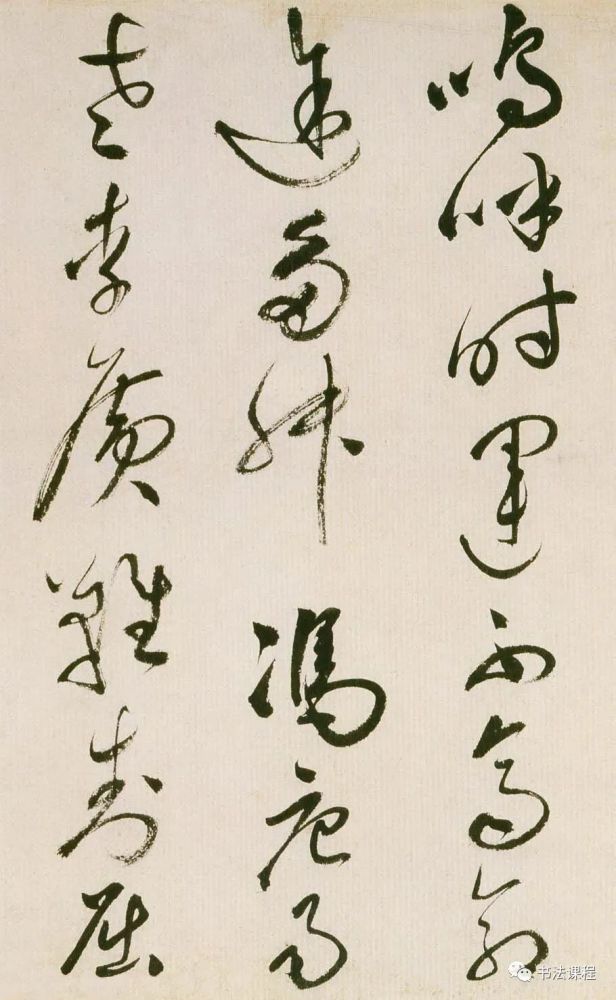 嗚呼時運不齊命
途多舛馮唐易
老李廣難封屈
书法课程